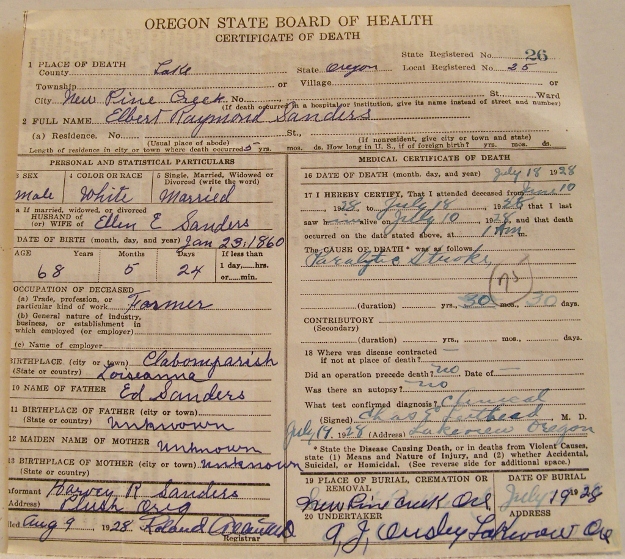 OREGON STATE BOARD OF HEALTH
CERTIFICATE OF DEATH
State Registered No. 26
1 PLACE OF DEATH
County Lake State Oregon Local Registered No. 25
Township or Village or
City New Pine Creek No. St. Ward
(If death occurred in a hospital or institution, give its name instead of street and number)
2 FULL NAME Elbert Raymond Sanders
(a) Residence. No. St.,
(Usual place of abode) (If nonresident, give city or town and state)
Length of residence in city or town where death occurred 5 yrs. mos. ds. How long in U. S., if of foreign birth? yrs. mos. ds.
PERSONAL AND STATISTICAL PARTICULARS
3 SEX 4 COLOR OR RACE 5 Single, Married, Widowed or Divorced (write the word)
male White Married
a If married, widowed, or divorced
HUSBAND of
(or) WIFE of Ellen E Sanders
DATE OF BIRTH (month, day, and year) Jan 23 1860
AGE Years Months Days If less than
68 5 24 1 day,....hrs.
or....min.
OCCUPATION OF DECEASED
(a) Trade, profession, or
particular kind of work Farmer
(b) General nature of industry,
business, or establishment in
which employed (or employer)
(c) Name of employer
BIRTHPLACE (city or town) Clabomparish
(State or country) Loiseanna
10 NAME OF FATHER
Ed Sanders
11 BIRTHPLACE OF FATHER (city or town)
(State or country) Unknown
12 MAIDEN NAME OF MOTHER
Unknown
13 BIRTHPLACE OF MOTHER (city or town) Unknown
(State or country)
Informant Harvey R Sanders
Address) Plush Oreg
Filed Aug 9 1928 Roland
Registrar
MEDICAL CERTIFICATE OF DEATH
16 DATE OF DEATH (month, day, and year) July 18 1928
17 I HEREBY CERTIFY, That I attended deceased from June 10
1928, to July 18, 1928 that I last
saw alive on July 10, 1928 and that death
occurred on the date stated above, at 1 Am.
The CAUSE OF DEATH * was as follows:
Paralytic Stroke,
(duration) yrs., mos., 30 days.
CONTRIBUTORY
(Secondary)
(duration) yrs., mos., days.
18 Where was disease contracted
if not at place of death? —
Did an operation precede death? no Date of —
Was there an autopsy? no
What test confirmed diagnosis? Clinical
(Signed) Chas E M. D.
July 19, 1928 (Address) Lakeview Oregon
* State the Disease Causing Death, or in deaths from Violent Causes,
state (1) Means and Nature of Injury, and (2) whether Accidental,
Suicidal, or Homicidal. (See reverse side for additional space.)
19 PLACE OF BURIAL, CREMATION OR REMOVAL DATE OF BURIAL
New Pine Creek Ore July 19 1928
20 UNDERTAKER ADDRESS
A J Ousley Lakeview Ore